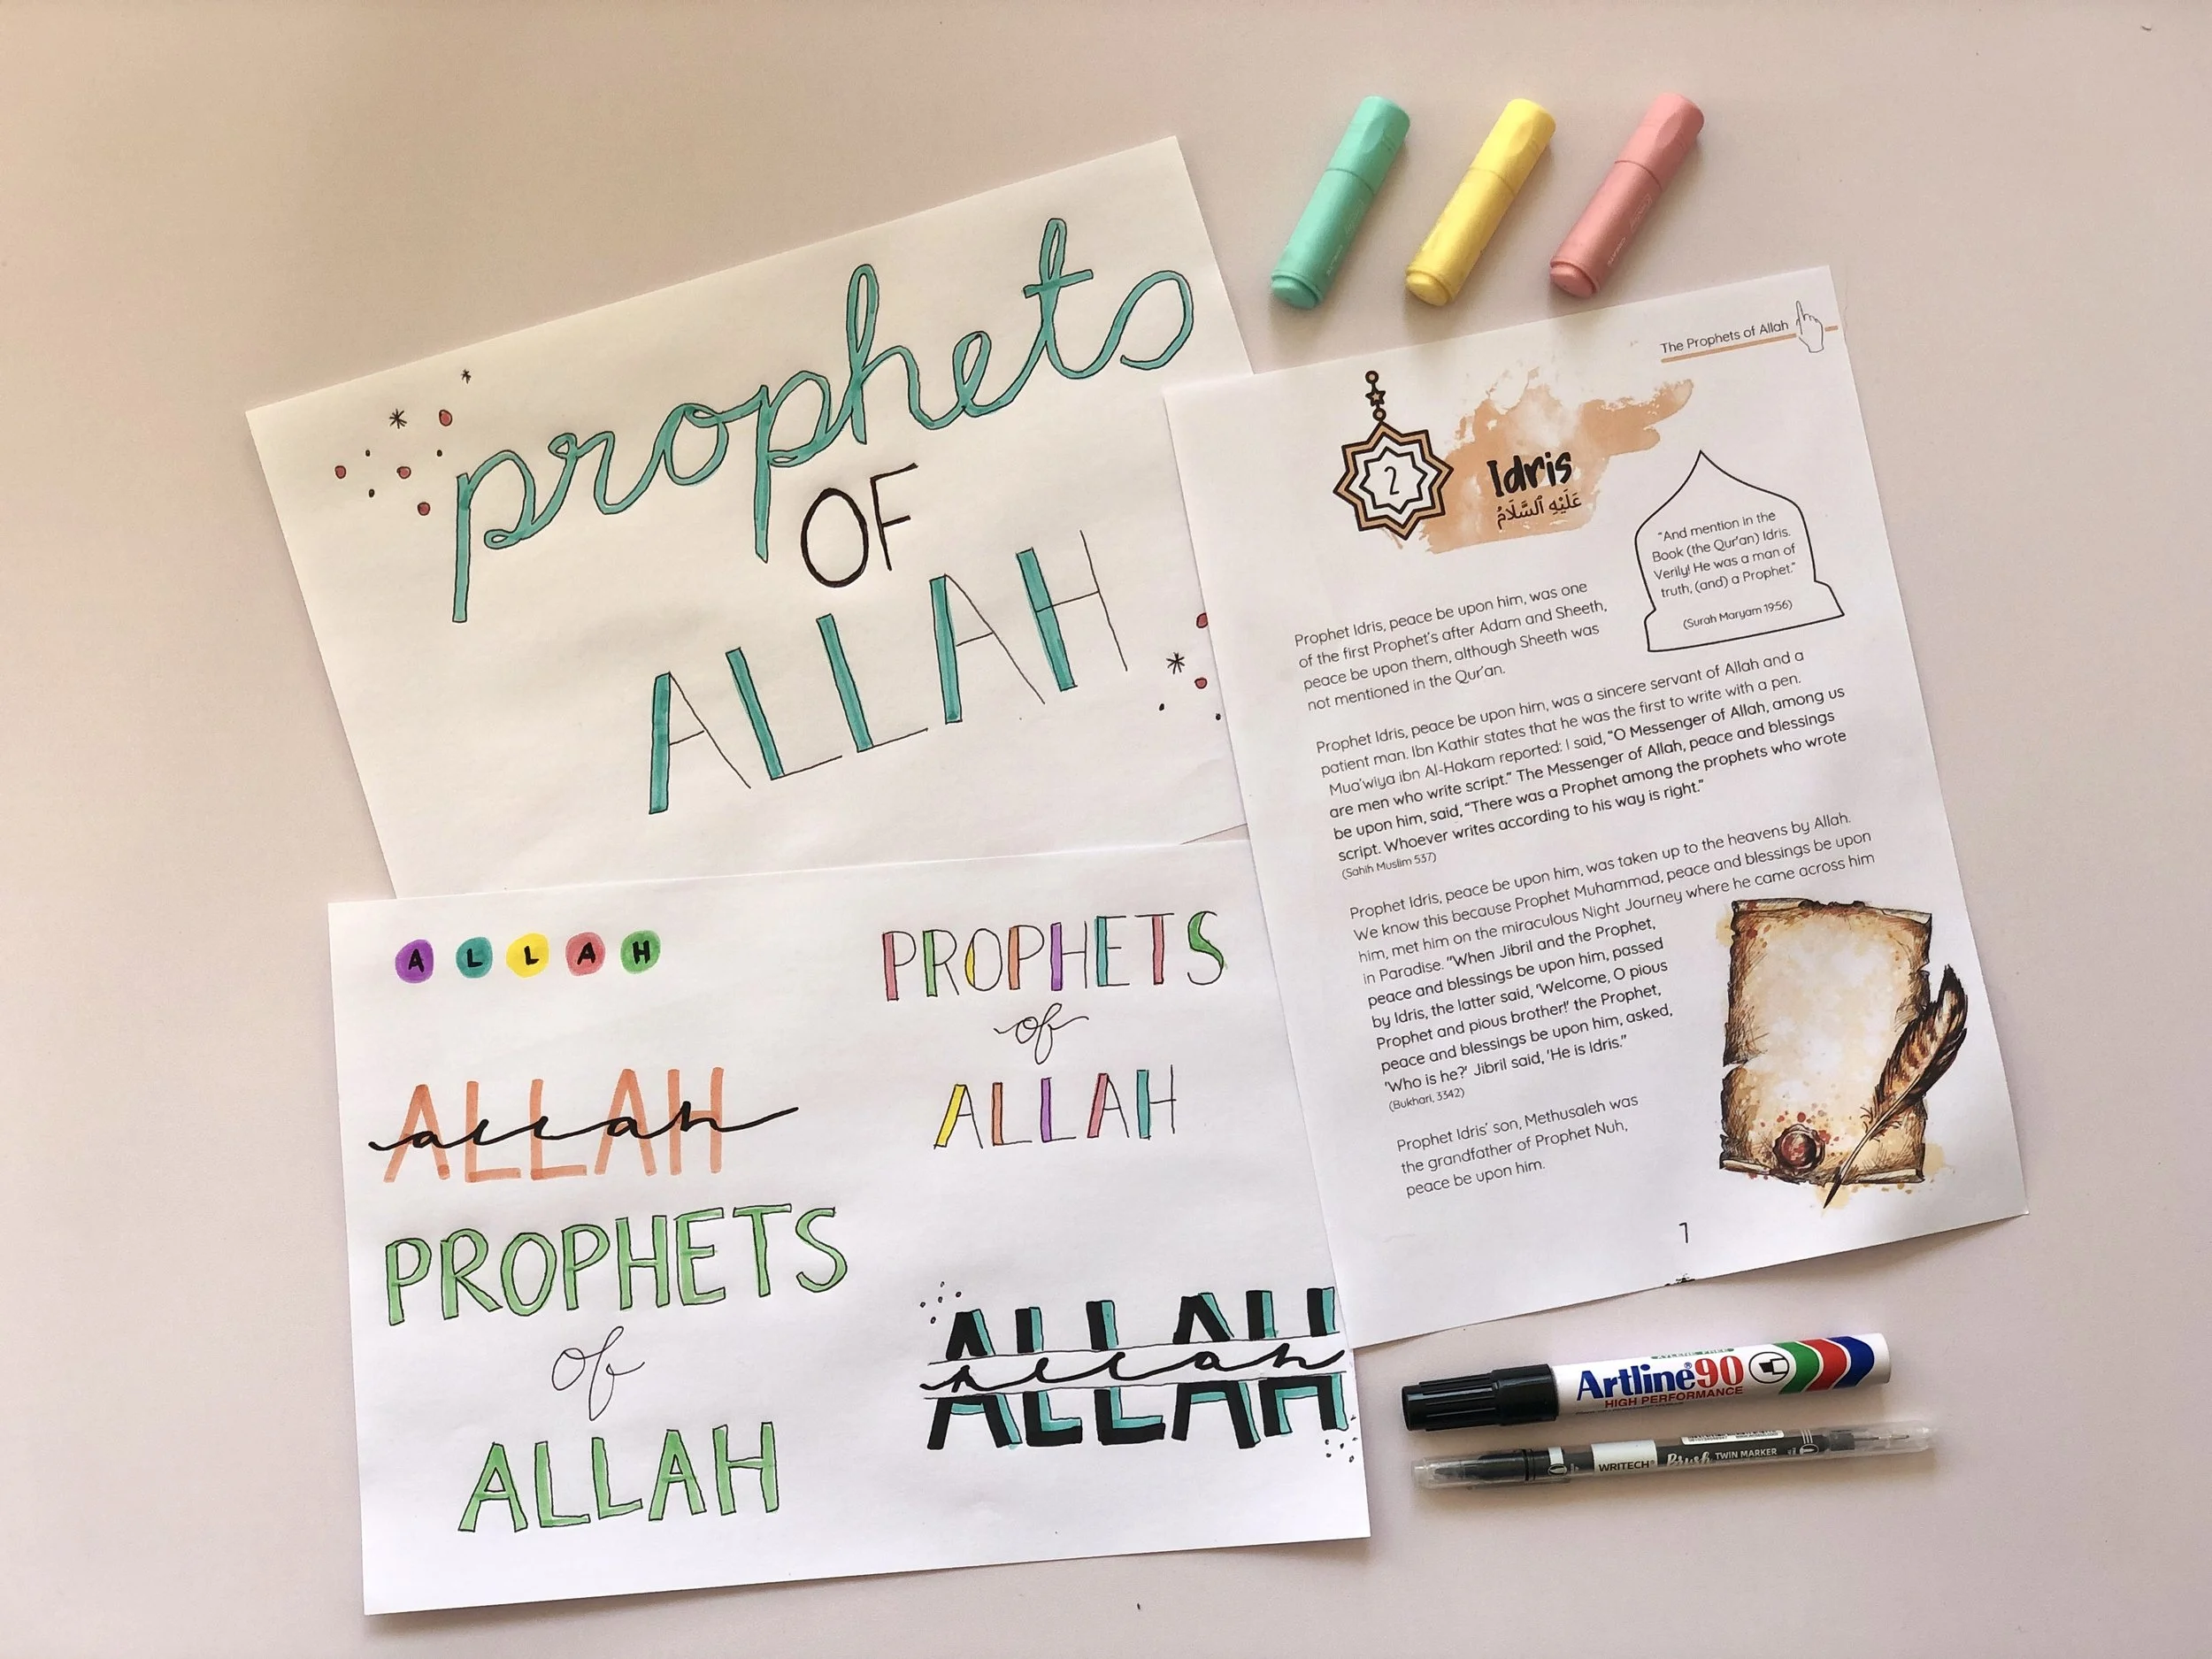 prophets
OF
ALLAH
The Prophets of Allah
2
Idris
عَلَيْهِ ٱلسَّلَامُ
"And mention in the
Book (the Qur'an) Idris.
Verily! He was a man of
truth, (and) a Prophet."
(Surah Maryam 19:56)
Prophet Idris, peace be upon him, was one
of the first Prophet's after Adam and Sheeth,
peace be upon them, although Sheeth was
not mentioned in the Qur'an.
Prophet Idris, peace be upon him, was a sincere servant of Allah and a
patient man. Ibn Kathir states that he was the first to write with a pen.
Mua'wiya ibn Al-Hakam reported: I said, "O Messenger of Allah, among us
are men who write script." The Messenger of Allah, peace and blessings
be upon him, said, "There was a Prophet among the prophets who wrote
script. Whoever writes according to his way is right."
(Sahih Muslim 537)
Prophet Idris, peace be upon him, was taken up to the heavens by Allah.
We know this because Prophet Muhammad, peace and blessings be upon
him, met him on the miraculous Night Journey where he came across him
in Paradise. "When Jibril and the Prophet,
peace and blessings be upon him, passed
by Idris, the latter said, 'Welcome, O pious
Prophet and pious brother!' the Prophet,
peace and blessings be upon him, asked,
'Who is he?' Jibril said, 'He is Idris."
(Bukhari, 3342)
Prophet Idris' son, Methusaleh was
the grandfather of Prophet Nuh,
peace be upon him.
7
ALLAH
ALLAH
allah
PROPHETS
of
ALLAH
PROPHETS
of
ALLAH
ALLAH
allah
XYLENE FREE
Artline 90
HIGH PERFORMANCE
WRITECH Brush TWIN MARKER